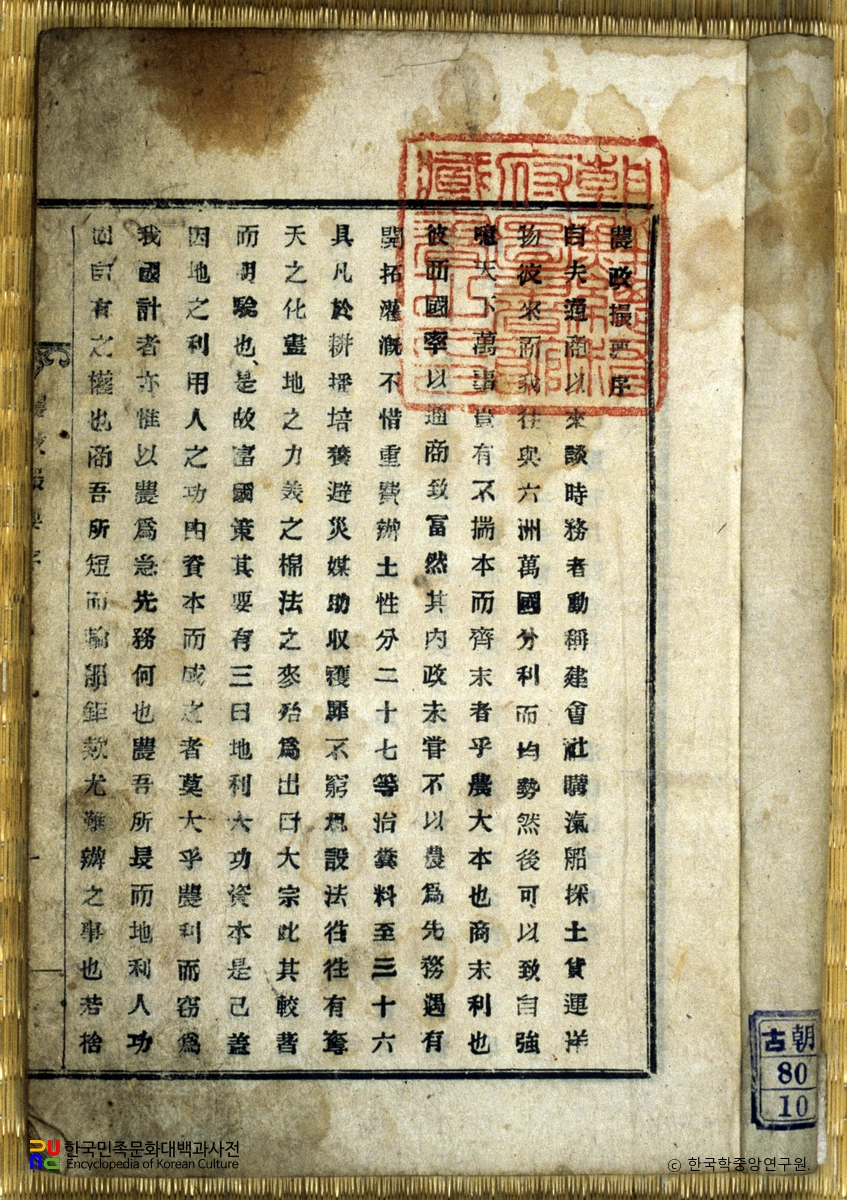 農政撮要序
自夫通商以來談時務者動稱建會社購滊船採土貨運洋
物彼來而我往與六洲萬國分利而均勢然後可以致自強
噫天下萬事豈有不揣本而齊末者乎農大本也商末利也
彼西國率以通商致富然其内政未甞不以農爲先務遇有
開拓灌漑不惜重費辦土性分二十七等治糞料至三十六
具凡於耕播培養避災媒助収穫罪不窮規設法徃徃有奪
天之化盡地之力美之棉法之麥殆爲出口大宗此其較著
而明驗也是故富國策其要有三曰地利人功資本是已蓋
因地之利用人之功由資本而成之者莫大乎農利而窃爲
我國計者亦惟以農爲急先務何也農吾所長而地利人功
固自有之權也商吾所短而輪舶鉅欵尤難辦之事也若捨
古朝
80
10
한국민족문화대백과사전
Encyclopedia of Korean Culture
© 한국학중앙연구원